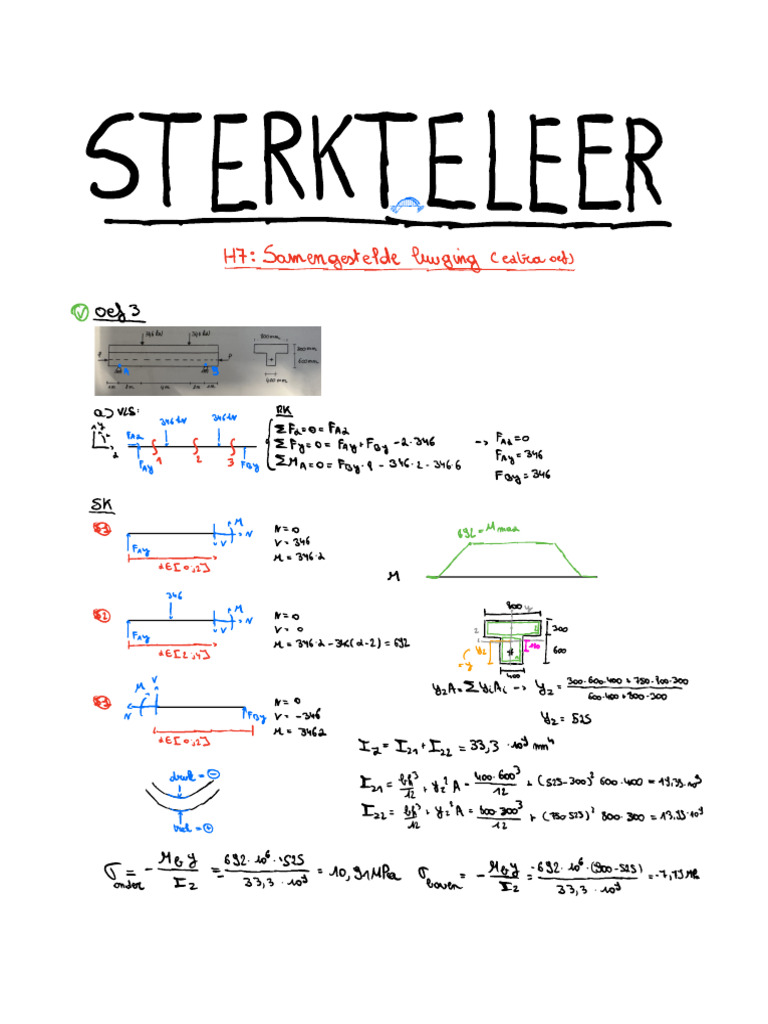 STERKTELEER
H7: Samengestelde buiging (extra oef)
V oef 3
346 kN 346 kN
800 mm
300 mm
600 mm
400 mm
P P
A B
2m 4m 2m
a) VLS:
y
z
346 kN 346 kN
F_Az
F_Ay 1 2 3 F_By
RK
ΣF_z=0=F_Az
ΣF_y=0=F_Ay+F_By-2·346
ΣM_A=0=F_By·8-346·2-346·6
-> F_Az=0
F_Ay=346
F_By=346
SK
S1
M
N
V
F_Ay
z∈[0;2]
N=0
V=346
M=346·z
692=M_max
M
S2
346
M
N
V
F_Ay
z∈[2;4]
N=0
V=0
M=346·z-346(z-2)=692
800
y
z
300
600
y_z
=y
400
y_z A=Σy_i A_i -> y_z=300·600·400+750·800·300
600·400+800·300
y_z=525
S3
M V
N
F_By
z∈[0;2]
N=0
V=-346
M=346z
I_z=I_z1+I_z2=33,3·10⁹ mm⁴
druk=⊖
trek=⊕
I_z1=bh³/12+y_z²A=400·600³/12+(525-300)²600·400=19,35·10⁹
I_z2=bh³/12+y_z²A=800·300³/12+(750-525)²800·300=13,95·10⁹
σ_onder=-M_b y/I_z=692·10⁶·525/33,3·10⁹=10,91MPa σ_boven=-M_b y/I_z=-692·10⁶·(900-525)/33,3·10⁹=-7,79 MPa